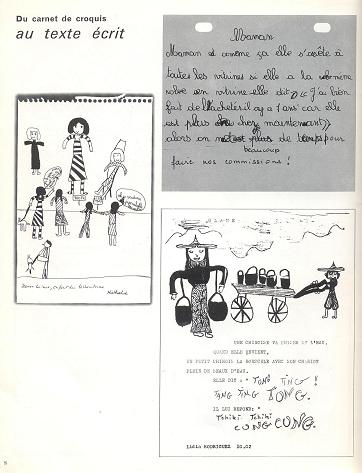 Du carnet de croquis
au texte écrit
Maman
Maman est comme ça elle s'arrête à
toutes les vitrines si elle a la même
robe en vitrine elle dit « J'ai bien
fait de l'acheter il y a 1 ans car elle
est plus chère maintenant »
alors on met plus de temps pour
beaucoup
faire nos commissions !
Nathalie
UNE CHINOISE VA CHERCHER DE L'EAU,
QUAND ELLE REVIENT,
UN PETIT CHINOIS LA BOUSCULE AVEC SON CHARIOT
PLEIN DE SEAUX D'EAU.
ELLE DIT : " TONG TING !
TANG TING TONG.
IL LUI REPOND: "
Tchiki Tchiki
CONG CONG.
Lidia RODRIGUEZ 10,02